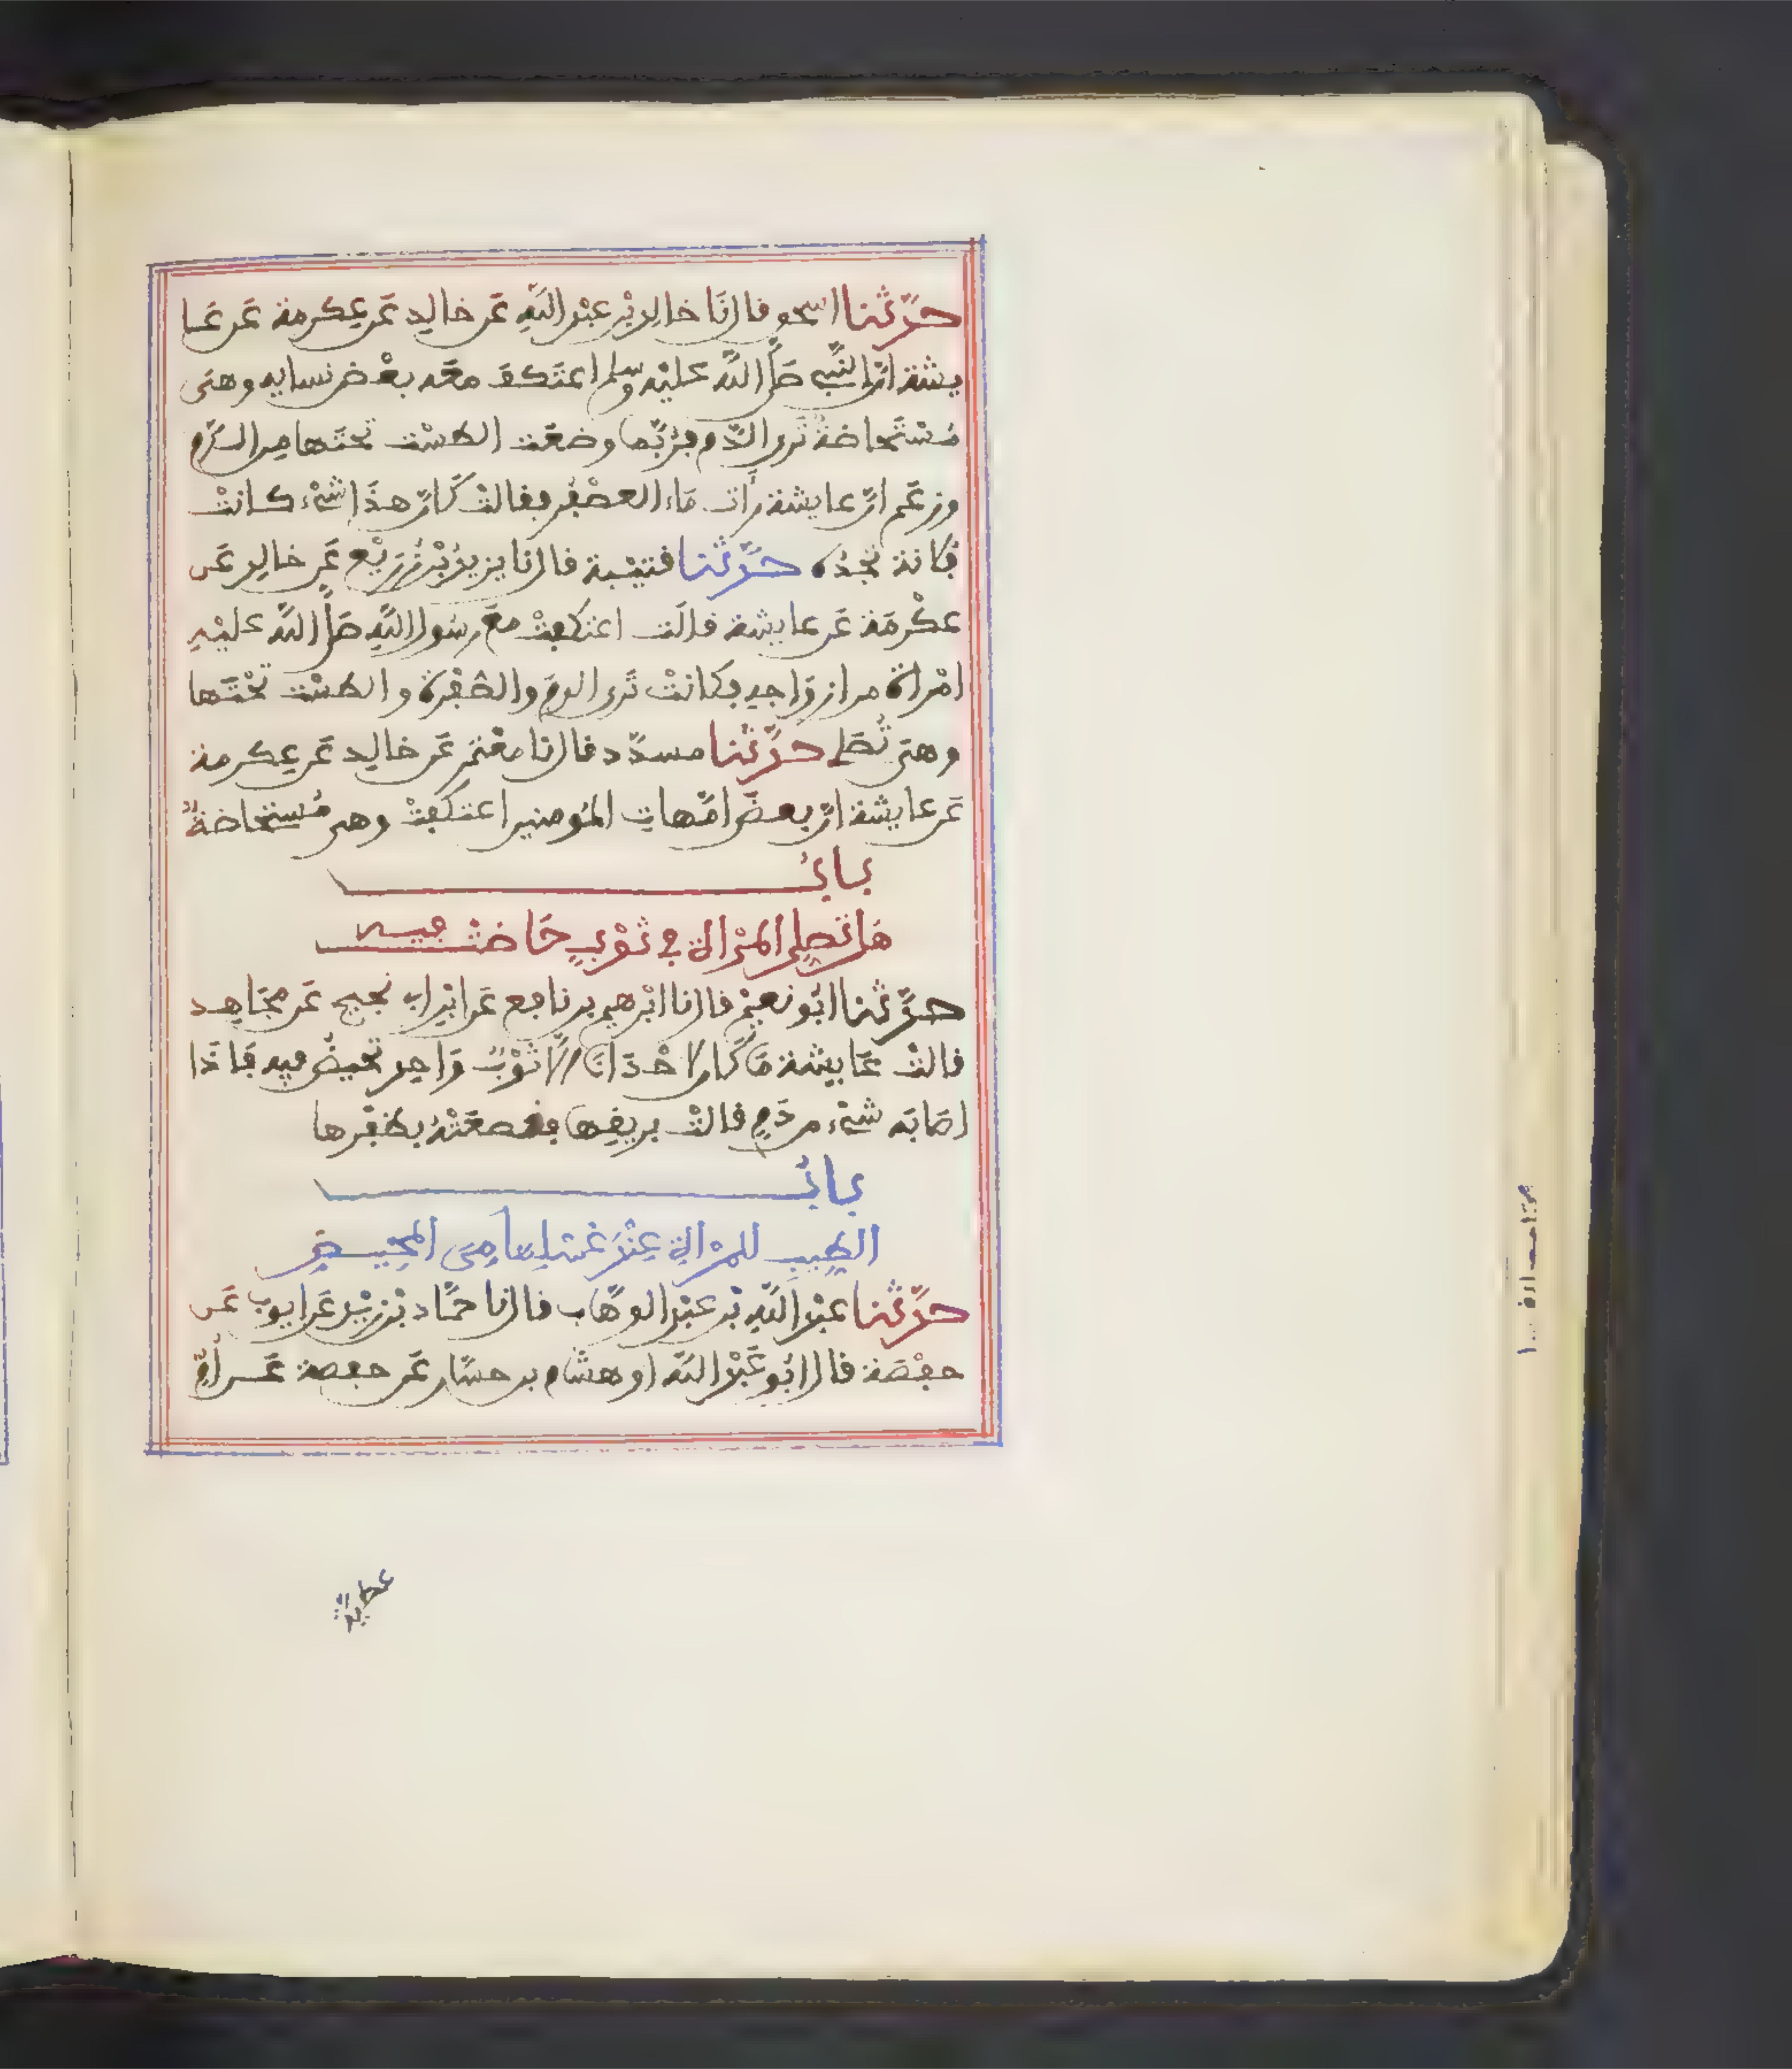 حدّثنا اسحٰو قال انَا خالد بْن عبْد اللَّهِ عَن خالِد عَن عِكرمة عَن عَا
يشة انّ النَّبي صَلَّى اللَّه عَليْه وسلم اعتَكفَ معَه بعْض نسايه وهىَ
مُسْتَحاضةٌ تَرى الدَّم فرُبَّما وضعَت الطسْت تحْتَها مِن الدَّمِ
وزعَم انّ عايشة رأَت مَاء العصْفُر فقالتْ كَانّ هذَا شىْء كانتْ
فلانة تجِدُه حدَّثنا قتيْبة قال نا يزيدُ بْنُ زُرَيْع عَن خالِد عَن
عكْرمَة عَن عايشة قالَت اعتكفتْ معَ رسُول اللَّهِ صَلَّى اللَّه عليْهِ
امْرأة من ازوَاجهِ فكانتْ تَرى الدمَ والصُّفْرة والطسْت تحْتَها
وهىَ تُصَلى حدَّثنا مسدّد قال نا معْتمِر عَن خالِد عَن عِكرمة
عَن عايشة انّ بعضَ امَّهاتِ المُومنين اعتكَفتْ وهى مُستحَاضةٌ
بابُ
هَل تُصلِى المَرْأة في ثوْبٍ حَاضتْ فيه
حدَّثنا ابُو نعيْم قال نا ابْرهيم بن نافع عَن ابْن ابى نجيح عَن مجَاهِد
قالتْ عَايشة مَا كَان لاحْدَانَا الَّا ثوْبٌ وَاحِد تحيضُ فيه فَاذَا
اصَابَه شىْء من دَمٍ قالتْ بريقِها فقصعَتْهُ بظفْرها
بابُ
الطيبِ للمرْأة عِنْدَ غسْلِهَا مِنَ المحِيضِ
حدَّثنا عبْد اللَّهِ بْن عبْد الوهَّاب قال نا حمَّاد بْن زيْد عَن ايوب عَن
حفْصَة قال ابُو عَبْد اللَّه او هشَام بن حسَّان عَن حفصة عَن أُمّ
عطيةَ